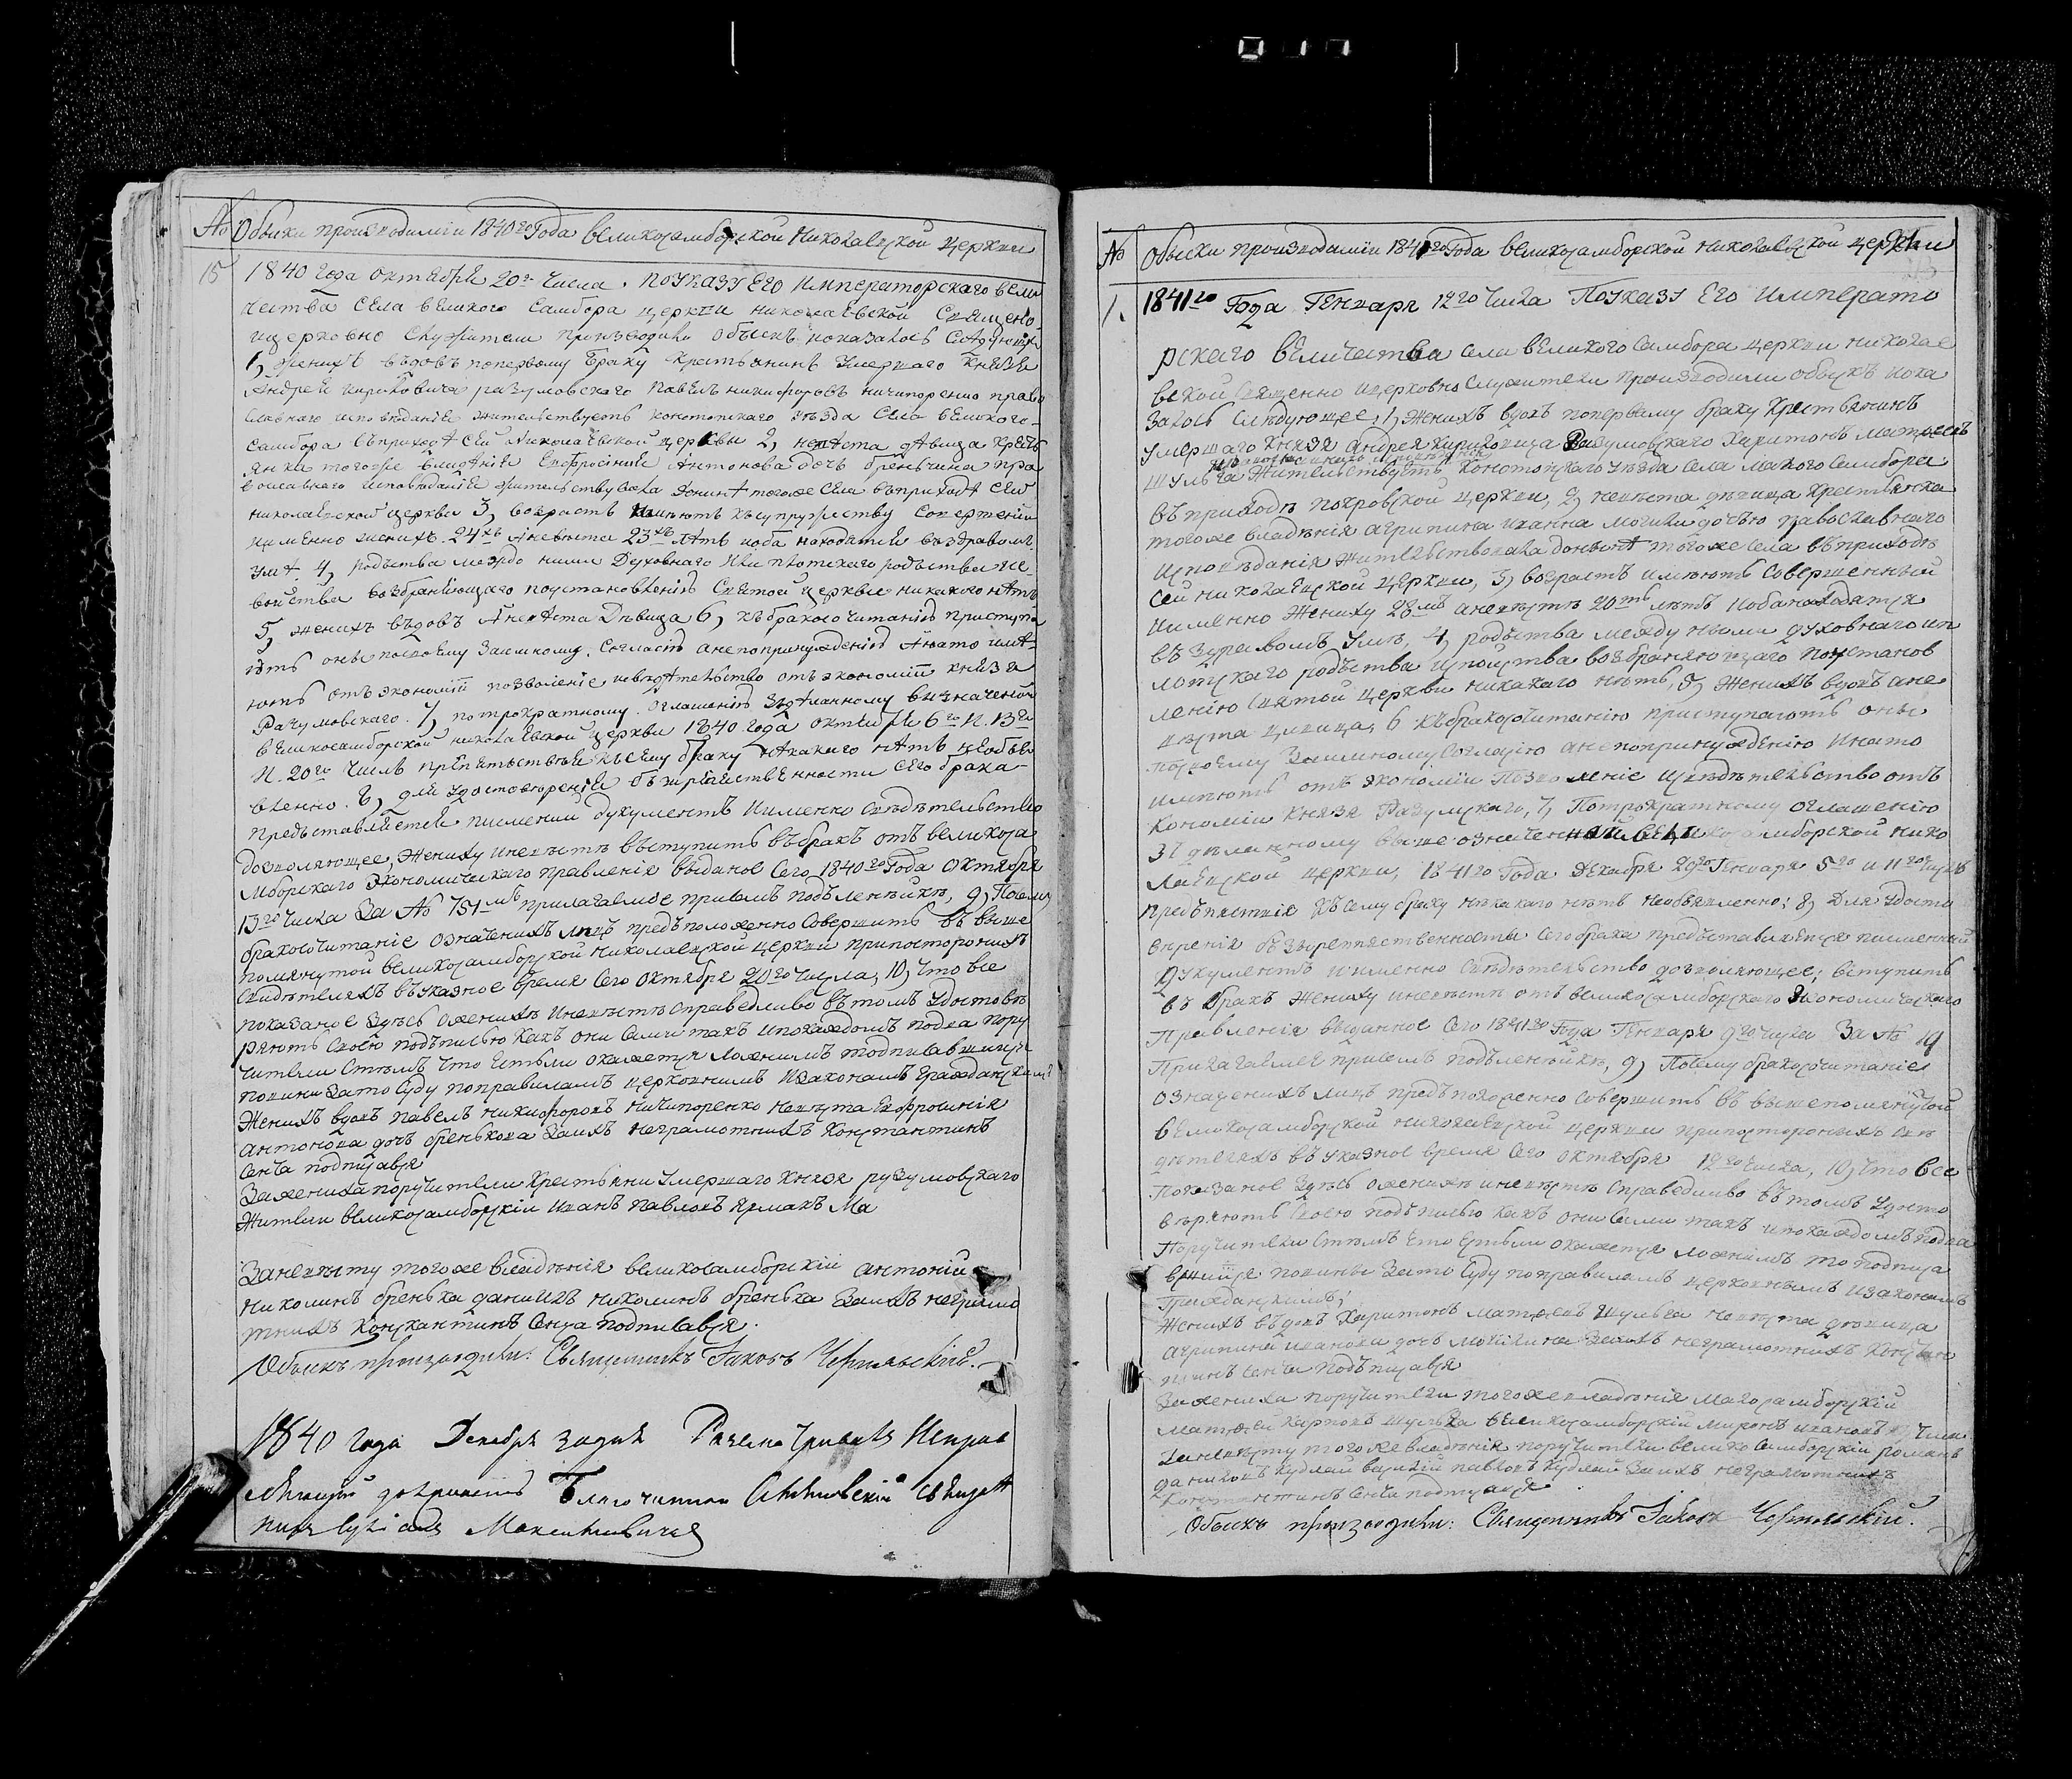 № Обыски производимiи 1840го Года великосамборской Николаевской церкви
15 1840 года октября 20го числа. По указу Его Императорскаго вели
чества села великого Самбора церкви николаевской Священо
церковно служители производили обыскъ показалось следующее
1, женихъ вѣдовъ попервому браку крестьянинъ умершаго князя
Андрея кириловича разумовского павелъ никифоровъ ничипоренко право
славнаго исповѣданiе жительствуетъ конотопскаго уѣзда села великого
самбора въприходѣ сей николаевской церкви 2, невѣста дѣвица крестъ
янка того же владѣнiя Ефросiния Антонова дочь бреньчина пра
вославного исповѣданiе жительствовала донинѣ тогоже села въприходѣ сей
николаевской церкви 3, возрастъ имѣютъ къ супружеству совершенiй
именно женихъ 24хъ аневѣста 23хъ лѣтъ иоба находятся въздравом
умѣ. 4, родъства между ними Духовнаго или плотскаго родъства исо
войства возбраняющаго поустановленiю святой церкви никакого нѣтъ
5, женихъ вѣдовъ Аневѣста Дѣвица 6, къбракосочитанiю приступа
ютъ они посвоему взаимному. Согласiю анепопринужденiю Анато имѣ
ютъ отъ экономiи позволенiе исвѣдѣтельство отъ экономiи князя
Разумовскаго. 7, потрократному. оглашенiю здѣланному въозначеной
великосамборской николаевской церкви 1840 года октября 6го И. 13го
И. 20го числъ препятъствiя къ сему браку некакого нѣтъ необъяв
ленно. 8, для удостоверенiя безпрепятственности сего брака
предъставляется писмений дукументъ Именно свѣдѣтельство
дозволяющее, Жениху иневѣстѣ въступить въбракъ отъ великоса
мборскаго экономическаго правленiя выданое сего 1840го Года Октября
13го числа за № 751мъ прилагаемое присемъ подълинѣикѣ, 9, Посему
бракосочитанiе означенихъ лицъ предъположенно совершить въ выше
помянутой великосамборской николаевской церкви припосторонихъ
свидѣтеляхъ въуказное время сего октября 20го числа, 10, что все
показаное здѣсь оженихѣ иневѣстѣ справедливо въ томъ удостовѣ
ряютъ своею подъписью какъ они сами такъ ипокаждомъ подва пору
чители стѣмъ что естьли окажется ложнимъ то подписавшиися
повини зато суду поправиламъ церковнимъ изаконамъ гражданскимъ
Женихъ вдовъ павелъ никифоровъ ничипоренко невѣста Ефросинiя
антонова дочъ бренькова Заихъ неграмотнихъ константинъ
Сенча подписався
Зажениха поручители крестьяни умершаго князя разумовскаго
Жители великосамборскiи иванъ павловъ ярмакъ Ма
Заневѣсту тогоже владѣнiя великосамборскiи антонiй
николинъ бренька данiилъ николинъ бренька Заихъ неграмо
тнихъ Константинъ Сенча подписався.
Обыскъ производили: Священникъ Iаковъ Чернявскiй.
1840 года Декабря
Благочинни
№ Обыски производимiи 1841го Года великосамборской николаевской церкви
1. 1841го Года Генваря 12го числа По указу Его Императо
рскаго величества села великого Самбора церкви николае
вской священно ицерковно служители производили обыскъ пока
залось слѣдующее; 1, Женихъ вдовъ попервому браку крестьянинъ
умершаго князя андрея кириловича Разумовскаго Харитонъ Матвеевъ
шульга жительствуетъ конотопскаго уѣзда села малого самбора
въприходѣ покровской церкви, 2, невѣста дѣвица крестьянка
тогоже владѣнiя агрипина иванна могили дочъ православнаго
исповѣданiя жительствовала донынѣ тогоже села въприходѣ
сей николаевской церкви, 3, возрастъ имѣютъ совершенный
иименно жениху 28мь аневѣстѣ 20ть лѣтъ иоба находятся
въздравомъ умѣ, 4, родъства между ними духовнаго ип
лотскаго родъства исвойства возбраняющаго поустанов
ленiю святой церкви никакаго нѣтъ, 5, женихъ вдовъ ане
вѣста дѣвица, 6 къбракосочитанiю приступаютъ они
посвоему взаимному согласiю анепопринужденiю инато
имѣютъ отъ экономiи Позволенiе исвѣдѣтельство отъ
кономiи князя Разумскаго, 7, Потрократному оглашенiю
здѣланному выше означенной великосамборской нико
лаевской церкви, 1841го Года Декабря 29го Генваря 5го и 11го числъ
предъпятствiя къ сему браку нѣкакаго нѣтъ необъявленно; 8, Для удосто
вѣренiя безпрепятственности сего брака предъставляется писменный
дукументъ иименно свѣдѣтельство дозволяющее; вступить
въ бракъ жениху иневѣстѣ отъ великосамборскаго экономическаго
Правленiя выданное сего 1841го Года Генваря 9го числа За № 19
Прилагаемое присемъ подъленѣикѣ, 9, Посему бракосочитанiе
означенихъ лицъ предъположенно совершить въ вышепомянутой
великосамборской николаевской церкви припосторонихъ свѣ
дѣтеляхъ въуказное время сего октября 12го числа, 10, что все
Показаное здѣсь оженихѣ иневѣстѣ справедливо въ томъ удосто
вѣряютъ своею подъписью какъ они сами такъ ипокаждомъ подва
Поручители стѣмъ что естьли окажется ложнимъ то подписа
вшиися повинны зато суду поправиламъ церковнымъ изаконамъ
Гражданскимъ;
Женихъ вѣдовъ Харитонъ Матвеевъ шульга невѣста дѣвица
агрипина иванова дочъ могилина Заихъ неграмотнихъ Констан
тинъ Сенча Подъписався
Зажениха поручители тогоже владѣнiя малосамборскiй
Матвей карповъ шульга великосамборскiй миронъ ивановъ
Заневѣсту тогоже владѣнiя поручители великосамборскiи романъ
даниловъ кудлай василiй павловъ кудлай Заихъ неграмотнихъ
Константинъ Сенча подписався
Обыскъ производили: Священникъ Iаковъ Чернявскiй.